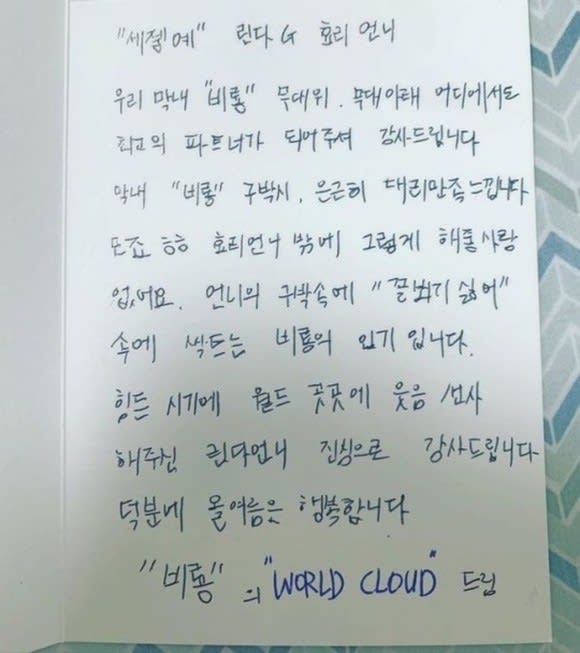 "세젤예" 린다G 효리 언니
우리 막내 "비룡" 무대위. 무대아래 어디에서도
최고의 파트너가 되어주셔 감사드립니다
막내 "비룡" 구박시, 은근히 대리만족느낍니다
또죠 ㅎㅎ 효리언니 밖에 그렇게 해줄사람
없어요. 언니의 구박속에 "꼴뵈기 싫어"
속에 싹트는 비룡의 인기 입니다.
힘든 시기에 월드 곳곳에 웃음 선사
해주신 린다언니 진심으로 감사드립니다
덕분에 올여름은 행복합니다
"비룡" 의 "WORLD CLOUD" 드림